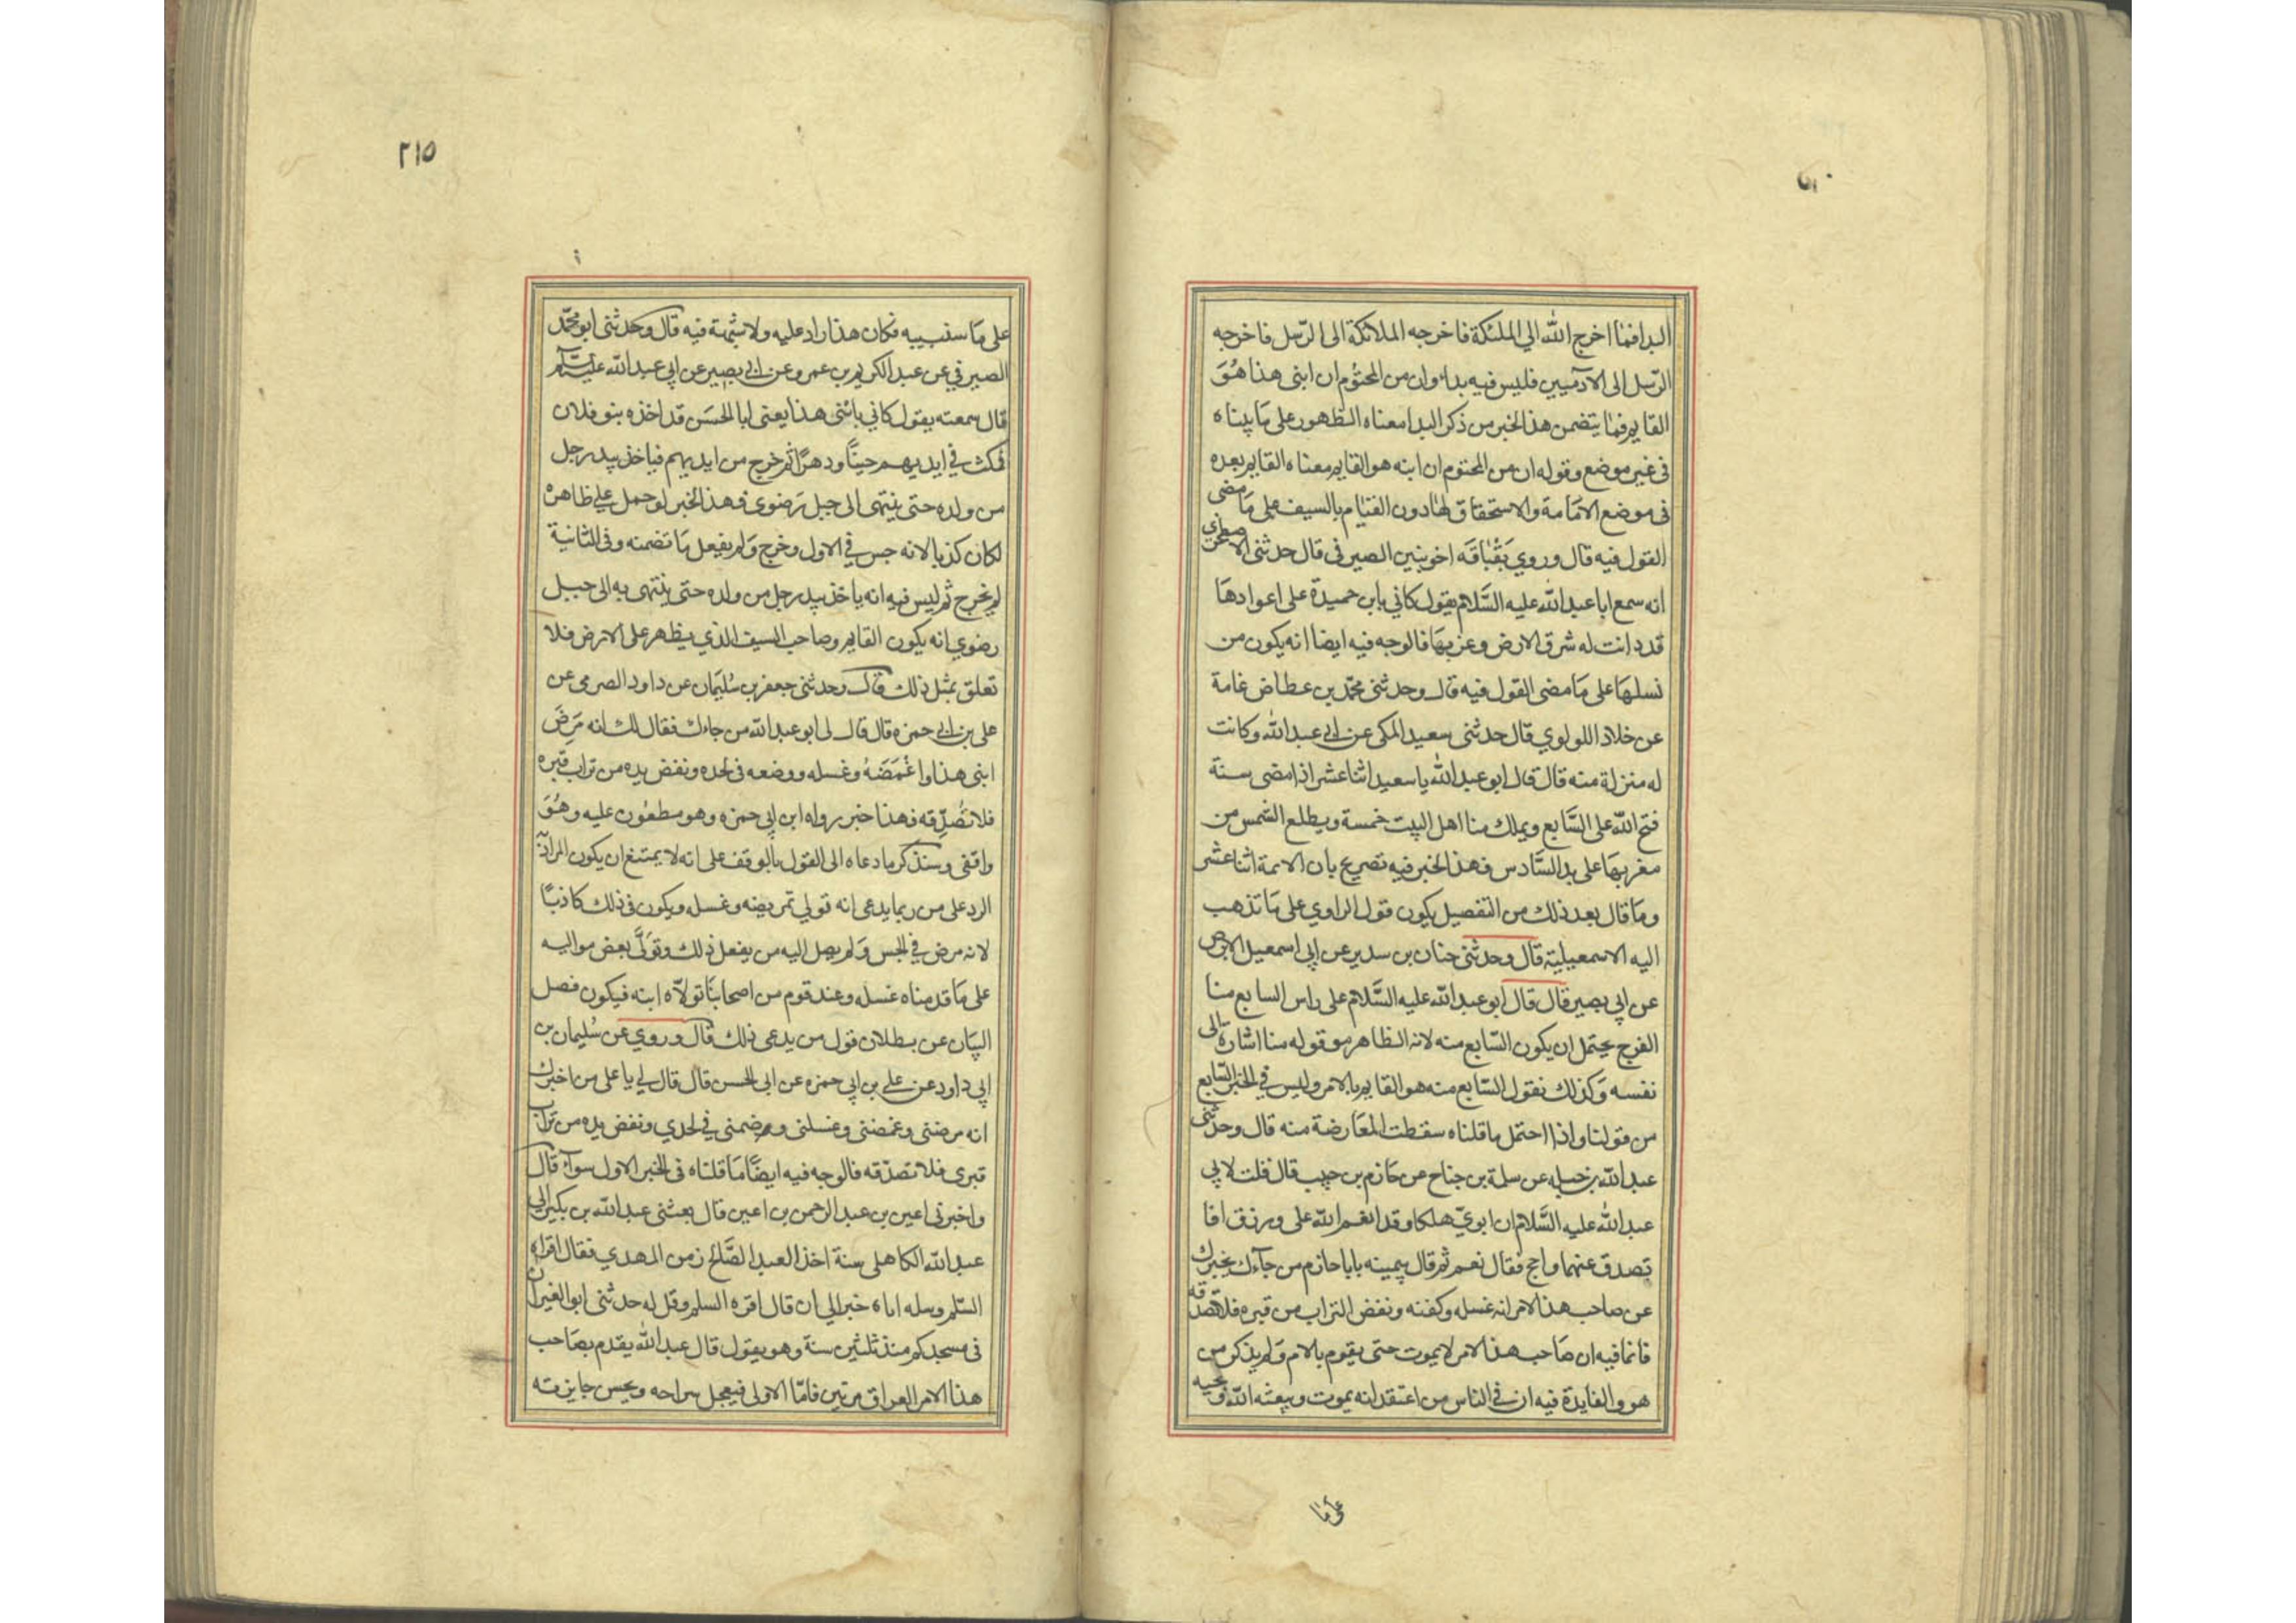 البدا فما اخرج الله الي الملئكة فاخرجه الملائكة الى الرسل فاخرجه
الرسل الى الادميين فليس فيه بداء وان من المحتوم ان ابنى هذا هو
القايم فما يتضمن هذا الخبر من ذكر البدا معناه الظهور على ما بيناه
فى غير موضع وقوله ان من المحتوم ان ابنه هو القايم معناه القايم بعده
فى موضع الامامة والاستحقاق لها دون القيام بالسيف على ما مضى
القول فيه قال وروي بقباقه اخو بنين الصيرفى قال حدثنى الاصطخري
انه سمع ابا عبد الله عليه السلام يقول كاني بابن حميدة على اعوادها
قد دانت له شرق الارض وغربها فالوجه فيه ايضا انه يكون من
نسلها على ما مضى القول فيه قال وحدثنى محمد بن عطا ض غامة
عن خلاد اللولوي قال حدثنى سعيد المكى عن ابي عبد الله وكانت
له منزلة منه قال قال ابو عبد الله يا سعيد اثنا عشر اذا مضى ستة
فتح الله على السابع ويملك منا اهل البيت خمسة ويطلع الشمس من
مغربها على يد السادس فهذا الخبر فيه تصريح بان الايمة اثنا عشر
وما قال بعد ذلك من التفصيل يكون قول الراوي على ما تذهب
اليه الاسمعيلية قال وحدثنى حنان بن سدير عن ابي اسمعيل الابرص
عن ابي بصير قال قال ابو عبد الله عليه السلام على راس السابع منا
الفرج يحتمل ان يكون السابع منه لانه الظاهر من قوله منا اشارة الى
نفسه وكذلك نقول السابع منه هو القايم بالامر وليس في الخبر السابع
من قولنا واذا احتمل ما قلناه سقطت المعارضة منه قال وحدثنى
عبد الله بن جبله عن سلمة بن جناح عن حازم بن حبيب قال قلت لابي
عبد الله عليه السلام ان ابوي هلكا وقد انعم الله على ورزق افا
تصدق عنهما واحج فقال نعم ثم قال بيمينه يا با حازم من جآءك يخبرك
عن صاحب هذا الامر انه غسله وكفنه ونفض التراب من قبره فلا تصدقه
فانما فيه ان صاحب هذا الامر لا يموت حتى يقوم بالامر ولم يذكر من
هو والفايدة فيه ان في الناس من اعتقد انه يموت ويبعثه الله ويحييه
على ما
٢١٥
على ما سنبينه فكان هذا راد عليه ولا شبهة فيه قال وحدثنى ابو محمد
الصيرفي عن عبد الكريم بن عمرو عن ابي بصير عن ابي عبد الله عليه السلام
قال سمعته يقول كاني بابنى هذا يعنى ابا الحسن قد اخذه بنو فلان
فمكث في ايديهم حينا ودهرا ثم خرج من ايديهم فياخذ بيد رجل
من ولده حتى ينتهى الى جبل رضوي فهذا الخبر لو حمل على ظاهره
لكان كذبا لانه حبس في الاول وخرج ولم يفعل ما تضمنه وفى الثانية
لم يخرج ثم ليس فيه انه ياخذ بيد رجل من ولده حتى ينتهى به الى جبل
رضوي انه يكون القايم وصاحب السيف الذي يظهر على الارض فلا
تعلق بمثل ذلك قال وحدثنى جعفر بن سليمان عن داود الصرمى عن
على بن ابي حمزه قال قال لى ابو عبد الله من جاءك فقال لك انه مرض
ابنى هذا واغمضه وغسله ووضعه فى لحده ونفض يده من تراب قبره
فلا تصدقه فهذا خبر رواه ابن ابي حمزه وهو مطعون عليه وهو
واقفى وسنذكر ما دعاه الى القول بالوقف على انه لا يمتنع ان يكون المراد به
الرد على من ربما يدعى انه تولي تمريضه وغسله ويكون فى ذلك كاذبا
لانه مرض في الحبس ولم يصل اليه من يفعل ذلك وتولى بعض مواليه
على ما قدمناه غسله وعند قوم من اصحابنا تولاه ابنه فيكون فصل
البيان عن بطلان قول من يدعى ذلك قال وروي عن سليمان بن
ابي داود عن علي بن ابي حمزه عن ابي الحسن قال قال لي يا على من اخبرك
انه مرضنى وغمضنى وغسلنى ووضعنى في لحدي ونفض يده من تراب
قبرى فلا تصدقه فالوجه فيه ايضا ما قلناه فى الخبر الاول سواء قال
واخبرنى اعين بن عبد الرحمن بن اعين قال بعثنى عبد الله بن بكير الى
عبد الله الكاهلى سنة اخذ العبد الصالح زمن المهدي فقال اقراه
السلم وسله اتاه خبر الي ان قال اقره السلم وقل له حدثنى ابو العيزار
فى مسجدكم منذ ثلثين سنة وهو يقول قال عبد الله يقدم بصاحب
هذا الامر العراق مرتين فاما الاولى فيعجل سراحه ويحسن جايزته